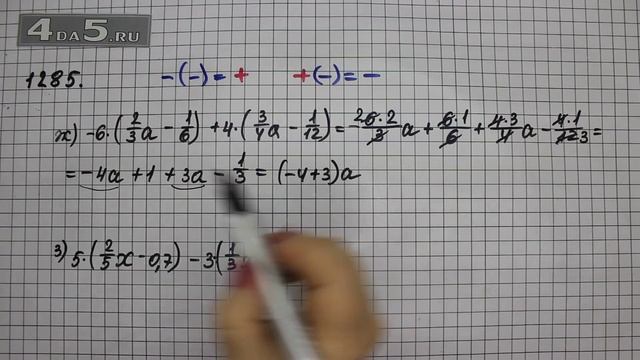 4DA5.RU
1285. -(-)=+ +(-)=-
ж) -6·(2/3a - 1/6) + 4·(3/4a - 1/12) = -6·2/3a + 6·1/6 + 4·3/4a - 4·1/12 =
= -4a + 1 + 3a - 1/3 = (-4+3)a
з) 5·(2/5x - 0,7) - 3·(1/3